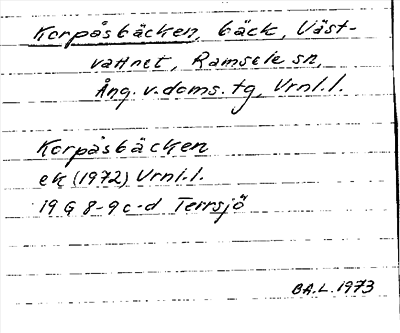 Korpåsbäcken, bäck, Väst-
vattnet, Ramsele sn,
Ång. v. doms. tg, Vrnl.l.
Korpåsbäcken
ek (1972) Vrnl.l.
19 G 8-9 c-d Terrsjö
BA.L. 1973